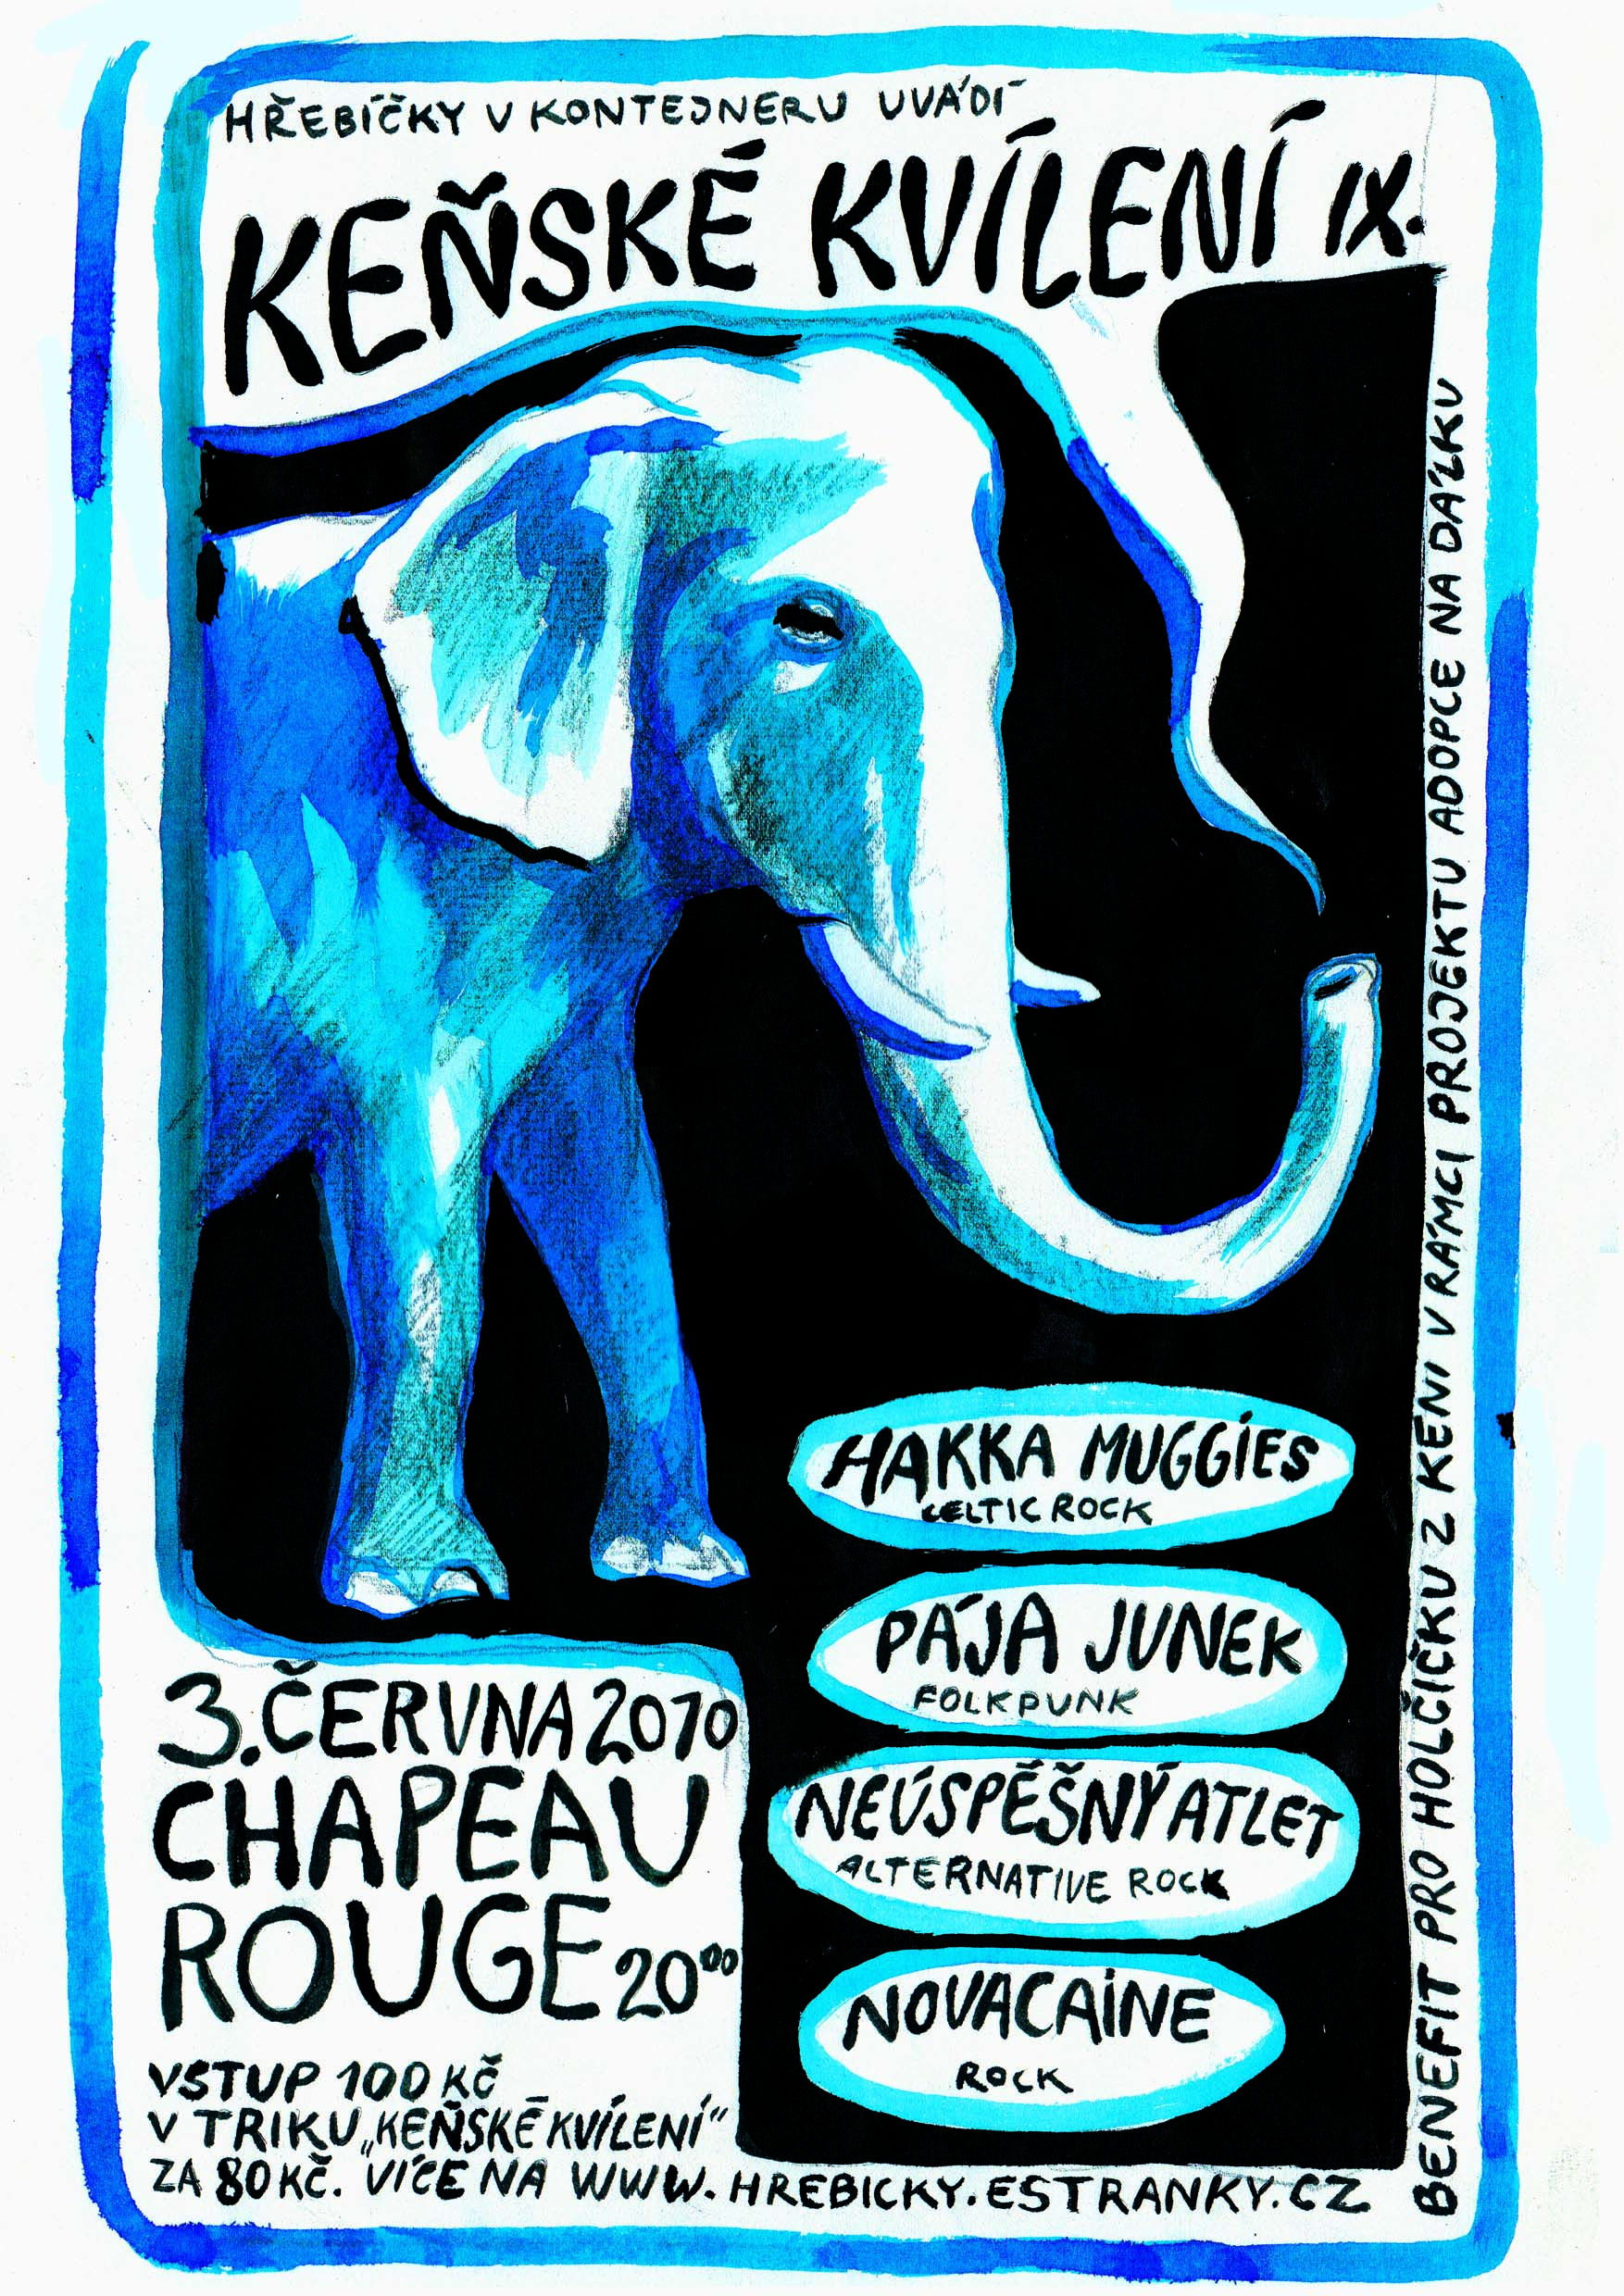 HŘEBÍČKY V KONTEJNERU UVÁDÍ
KEŇSKÉ KVÍLENÍ IX.
BENEFIT PRO HOLČIČKU Z KENI V RÁMCI PROJEKTU ADOPCE NA DÁLKU
HAKKA MUGGIES
CELTIC ROCK
PÁJA JUNEK
FOLKPUNK
NEÚSPĚŠNÝ ATLET
ALTERNATIVE ROCK
NOVACAINE
ROCK
3. ČERVNA 2010
CHAPEAU
ROUGE 20⁰⁰
VSTUP 100 KČ
V TRIKU „KEŇSKÉ KVÍLENÍ“
ZA 80 KČ. VÍCE NA WWW.HREBICKY.ESTRANKY.CZ